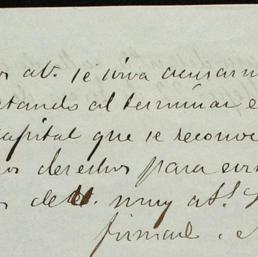 at. se sirva acusarn
tando al terminar e
capital que se reconoce
os derechos para evi
s de muy at.
firmado.